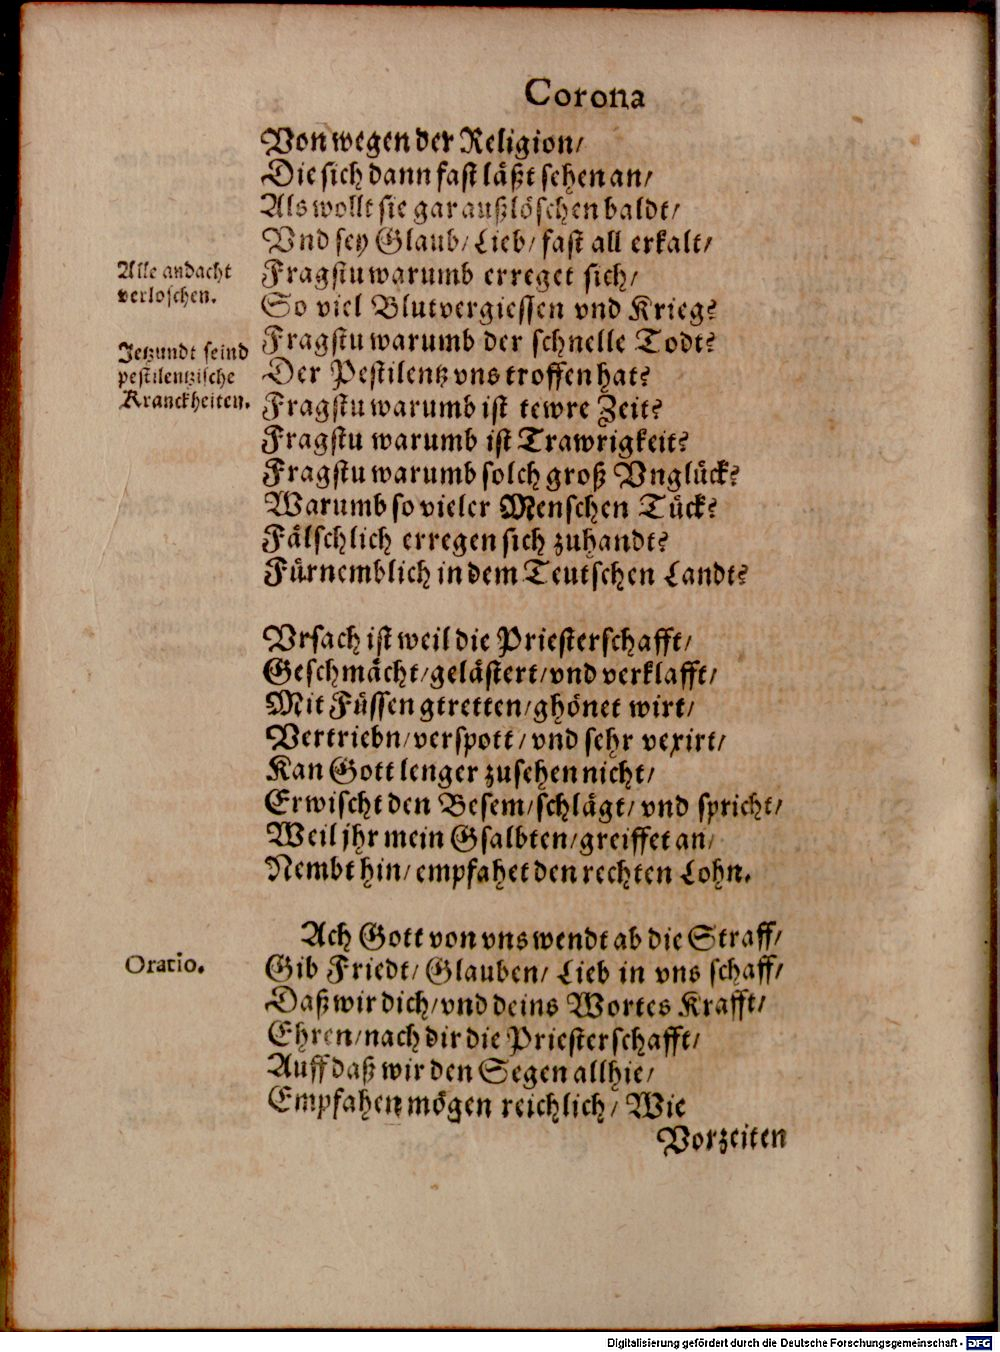 Corona
Von wegen der Religion/
Die sich dann fast läßt sehen an/
Als wollt sie gar außlöschen baldt/
Vnd sey Glaub/ Lieb/ fast all erkalt/
Alle andacht
verloschen.
Fragstu warumb erreget sich/
So viel Blutvergiessen vnd Krieg?
Jetzundt seind
pestilentzische
Kranckheiten.
Fragstu warumb der schnelle Todt?
Der Pestilentz vns troffen hat?
Fragstu warumb ist tewre Zeit?
Fragstu warumb ist Trawrigkeit?
Fragstu warumb solch groß Vnglück?
Warumb so vieler Menschen Tück?
Fälschlich erregen sich zuhandt?
Fürnemblich in dem Teutschen Landt?
Vrsach ist weil die Priesterschafft/
Geschmächt/ gelästert/ vnd verklafft/
Mit Füssen gtretten/ ghönet wirt/
Vertriebn/ verspott/ vnd sehr vexirt/
Kan Gott lenger zusehen nicht/
Erwischt den Besem/ schlägt/ vnd spricht/
Weil jhr mein Gsalbten/ greiffet an/
Nembt hin/ empfahet den rechten Lohn.
Ach Gott von vns wendt ab die Straff/
Oratio.
Gib Friedt/ Glauben/ Lieb in vns schaff/
Daß wir dich/ vnd deins Wortes Krafft/
Ehren/ nach dir die Priesterschafft/
Auff daß wir den Segen allhie/
Empfahen mögen reichlich/ Wie
Vorzeiten
Digitalisierung gefördert durch die Deutsche Forschungsgemeinschaft - DFG